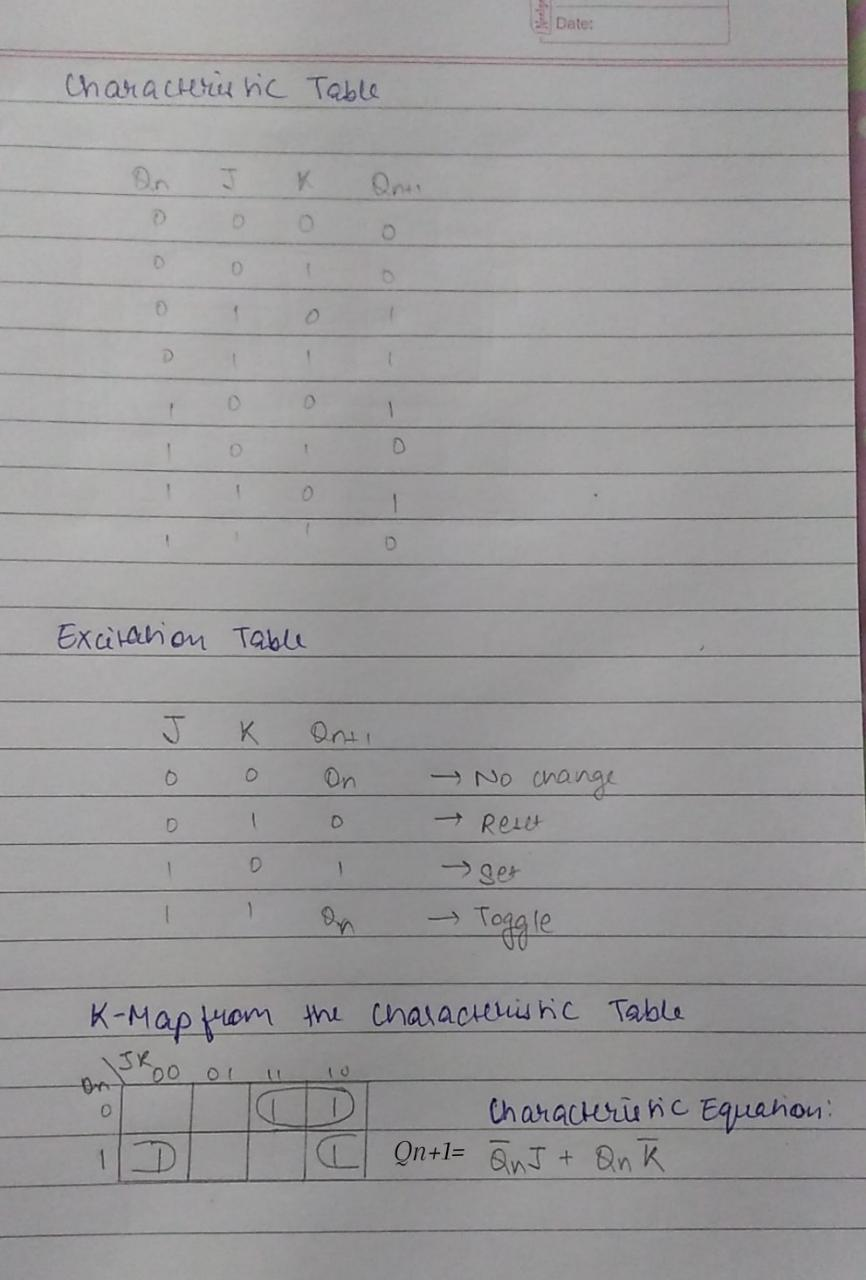 Date:
Characteristic Table
Qn J K Qn+1
0 0 0 0
0 0 1 0
0 1 0 1
0 1 1 1
1 0 0 1
1 0 1 0
1 1 0 1
1 1 1 0
Excitation Table
J K Qn+1
0 0 Qn → No change
0 1 0 → Reset
1 0 1 → Set
1 1 Qn → Toggle
K-Map from the Characteristic Table
Qn\JK 00 01 11 10
0 1 1 Characteristic Equation:
1 1 1 Qn+1= Q̅nJ + QnK̅